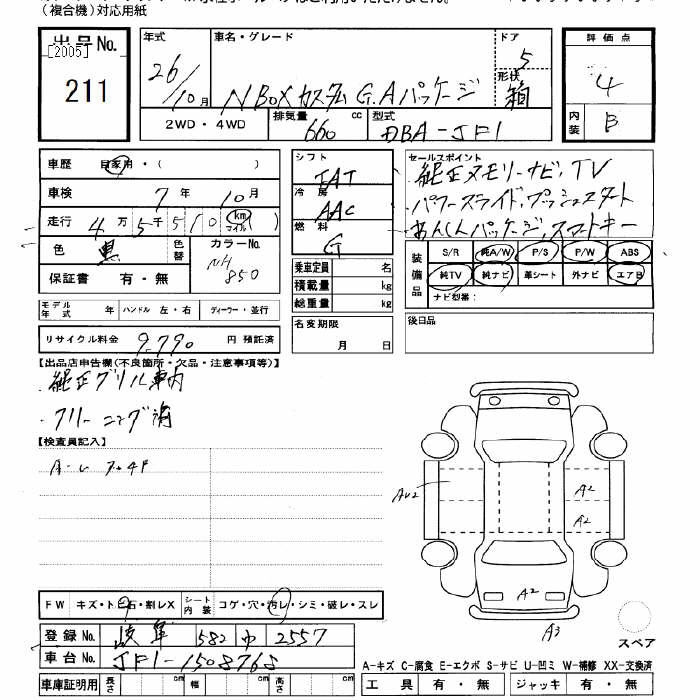 (複合機)対応用紙
出品No.
[2005]
211
年式 26/10月
車名・グレード N BOX カスタム G.Aパッケージ
ドア 5
形状 箱
評価点 4
内装 B
2WD・4WD
排気量 660 cc
型式 DBA-JF1
車歴 自家用・( )
車検 7年 10月
走行 4万5千510 km マイル
色 黒 色替 カラーNo. NH850
保証書 有・無
モデル年式 年 ハンドル 左・右 ディーラー・並行
リサイクル料金 9,790 円 預託済
シフト IAT
冷房 AAC
燃料 G
乗車定員 名
積載量 kg
総重量 kg
名変期限 月 日
セールスポイント
純正メモリーナビ,TV
パワースライド,プッシュスタート
あんしんパッケージ,スマートキー
装備品
S/R 純A/W P/S P/W ABS
純TV 純ナビ 革シート 外ナビ エアB
ナビ型番:
後日品
【出品店申告欄(不良箇所・欠品・注意事項等)】
・純正グリル車内
・クリーニング済
【検査員記入】
AU2
A2
A2
A2
A3
スペア
FW キズ・トビ石・割レX シート内装 コゲ・穴・汚レ・シミ・破レ・スレ
登録No. 岐阜 582 か 2557
車台No. JF1-1508768
車庫証明用 長さ cm 幅 cm 高さ cm
A-キズ C-腐食 E-エクボ S-サビ U-凹ミ W-補修 XX-交換済
工具 有・無 ジャッキ 有・無